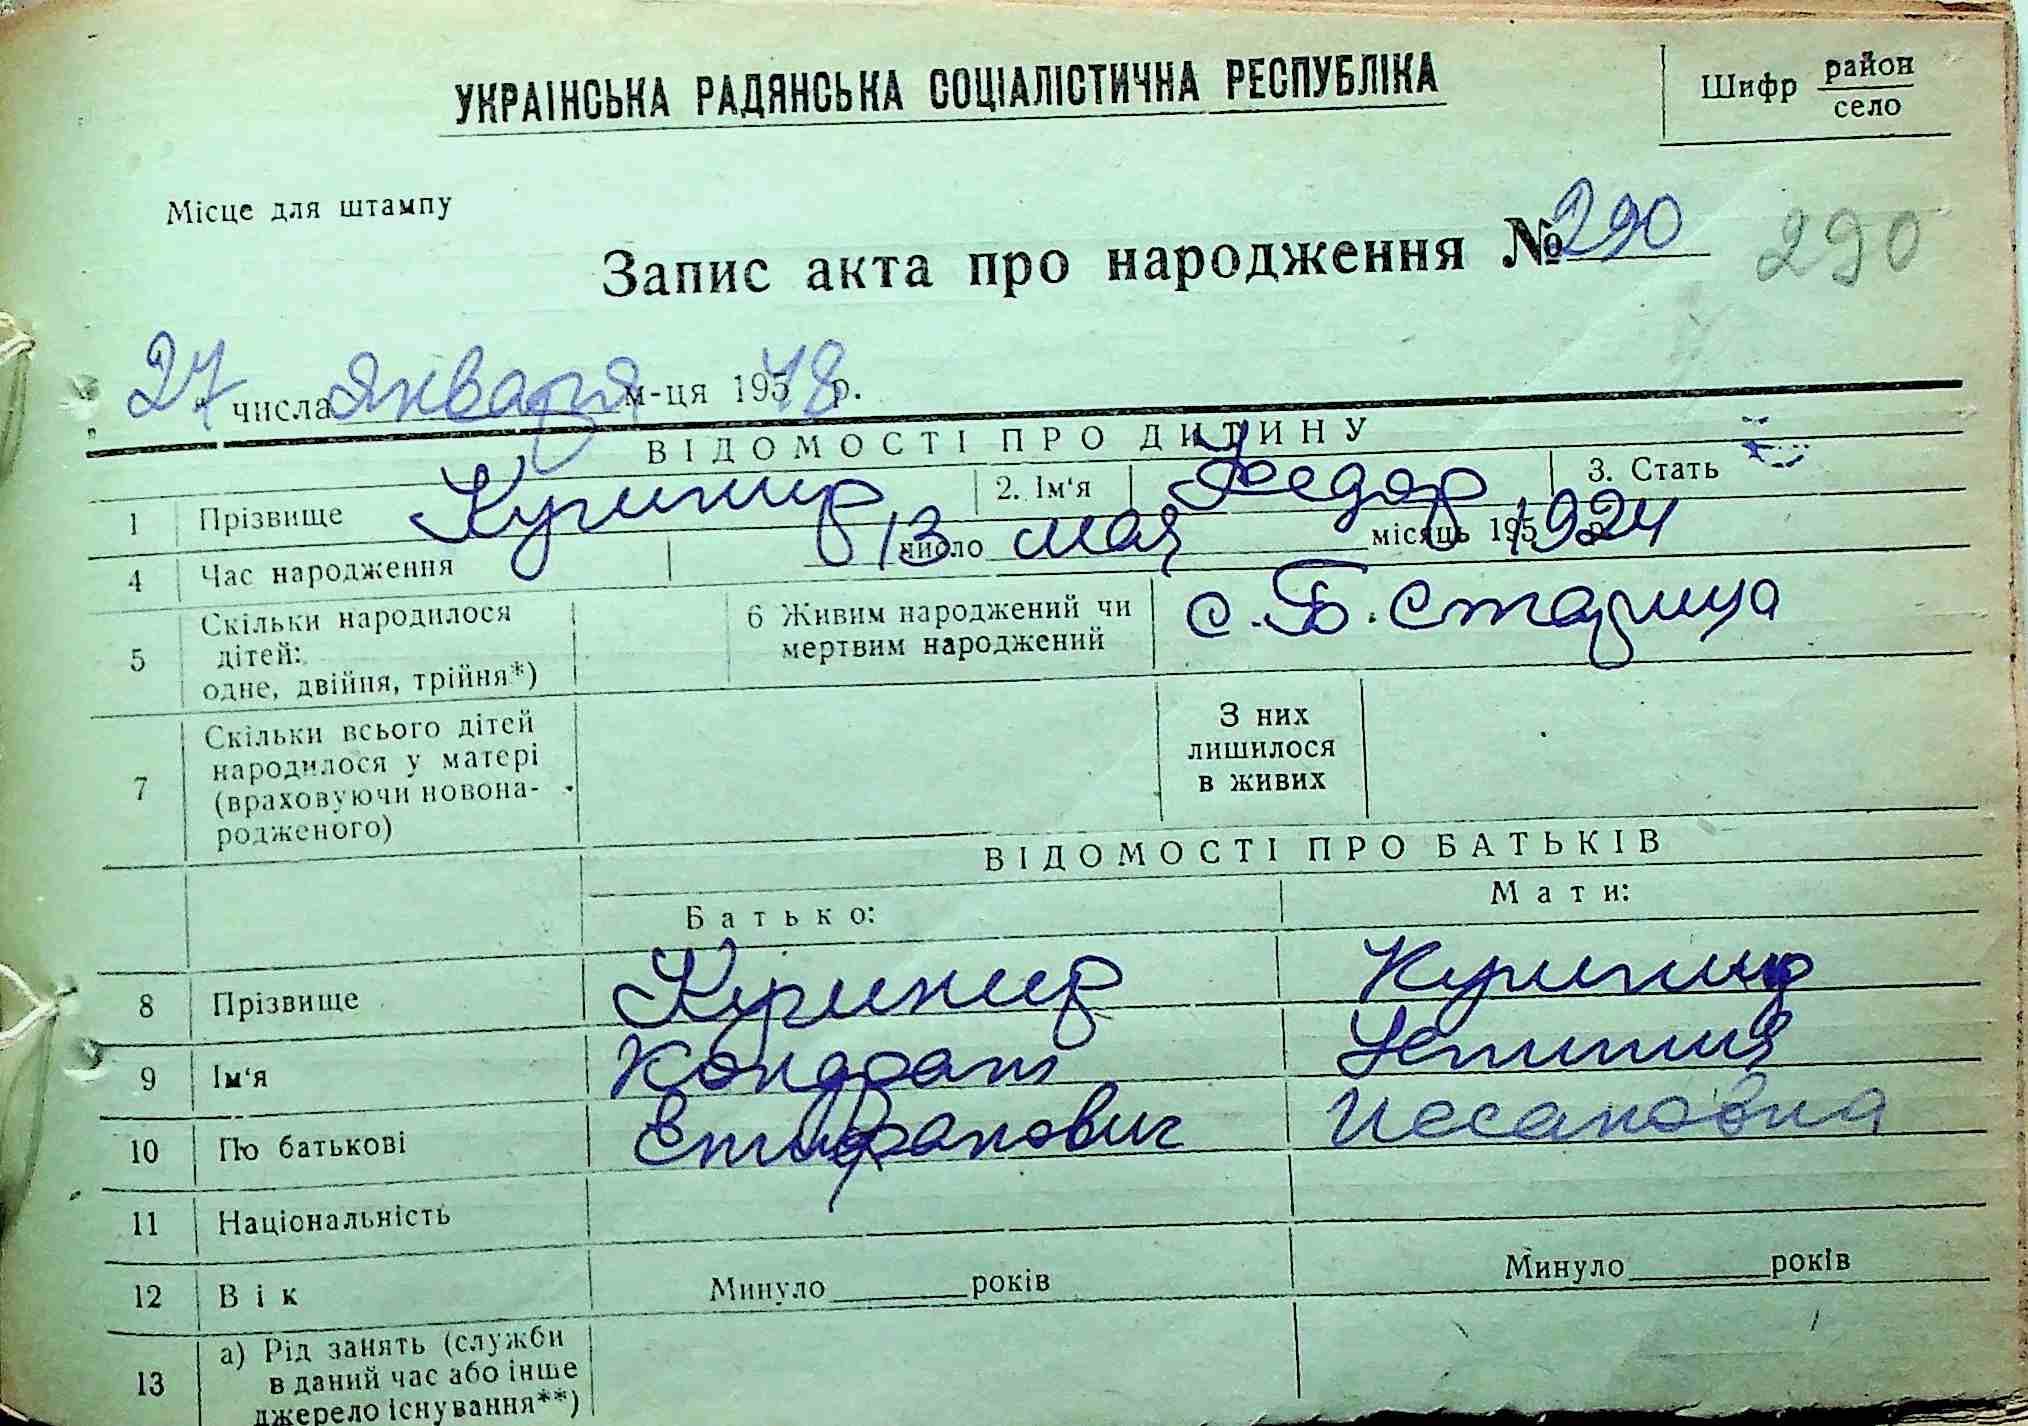 УКРАЇНСЬКА РАДЯНСЬКА СОЦІАЛІСТИЧНА РЕСПУБЛІКА
Шифр район
село
Місце для штампу
Запис акта про народження № 290 290
27 числа января м-ця 195 48 р.
ВІДОМОСТІ ПРО ДИТИНУ
1 Прізвище Кушнир 2. Ім'я Федор 3. Стать
4 Час народження 13 число мая місяць 195 1924 р.
5 Скільки народилося
дітей:
одне, двійня, трійня*)
6 Живим народжений чи
мертвим народжений
с. Б. Старица
7 Скільки всього дітей
народилося у матері
(враховуючи новона-
родженого)
З них
лишилося
в живих
ВІДОМОСТІ ПРО БАТЬКІВ
Батько: Мати:
8 Прізвище Кушнир Кушнир
9 Ім'я Кондрат
10 По батькові
11 Національність
12 Вік Минуло років Минуло років
13 а) Рід занять (служби
в даний час або інше
джерело існування**)